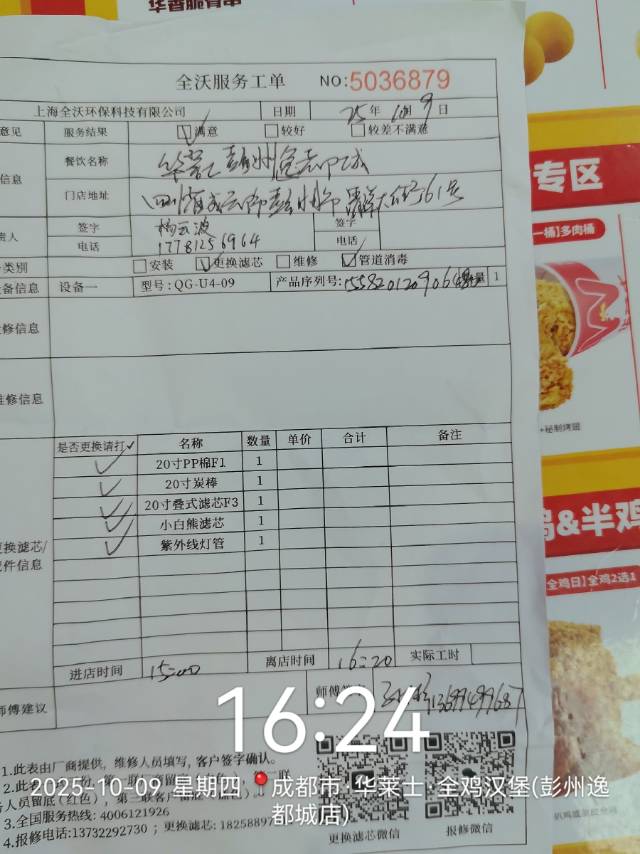 华香脆骨串
全沃服务工单 NO:5036879
上海全沃环保科技有限公司 日期 25年10月9日
意见 服务结果 满意 较好 较差不满意
信息 餐饮名称
门店地址
责人 签字 杨云波 签字
电话 17781256964 电话
类别 安装 更换滤芯 维修 管道消毒
备信息 设备一 型号: QG-U4-09 产品序列号: 数量 1
修信息
维修信息
是否更换请打✓ 名称 数量 单价 合计 备注
✓ 20寸PP棉F1 1
✓ 20寸炭棒 1
✓ 20寸叠式滤芯F3 1
✓ 小白熊滤芯 1
✓ 紫外线灯管 1
更换滤芯/
配件信息
进店时间 15:00 离店时间 16:20 实际工时
师傅建议 师傅
16:24
1.此表由厂商提供，维修人员填写，客户签字确认。
2025-10-09 星期四 成都市·华莱士·全鸡汉堡(彭州逸都城店)
3.全国服务热线: 4006121926
4.报修电话:13732292730 ; 更换滤芯: 18258897
更换滤芯微信 报修微信
专区
一桶】多肉桶
+秘制烤翅
&半鸡
全鸡日】全鸡2选1